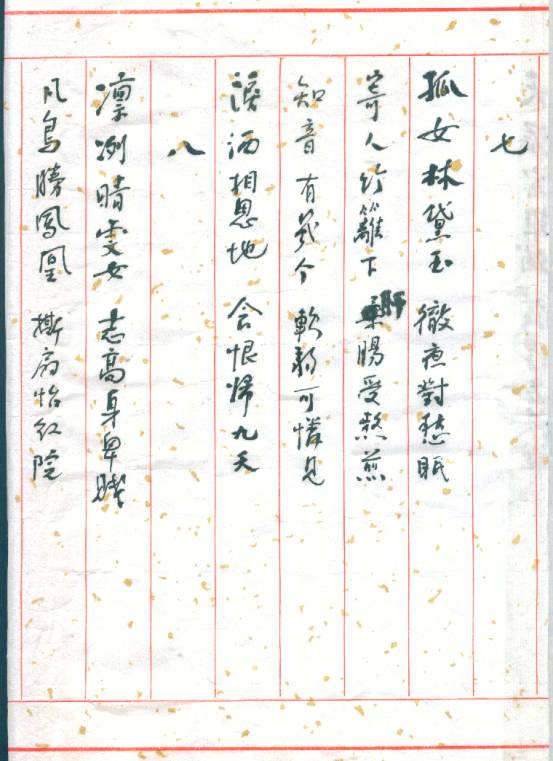 七
孤女林黛玉 徹夜對愁眠
寄人竹籬下 肝腸受熬煎
知音有幾个 軟弱可憐見
淚洒相思地 含恨帰九天
八
凛冽晴雯女 志高身卑賤
凡鳥勝鳳凰 撕扇怡红院